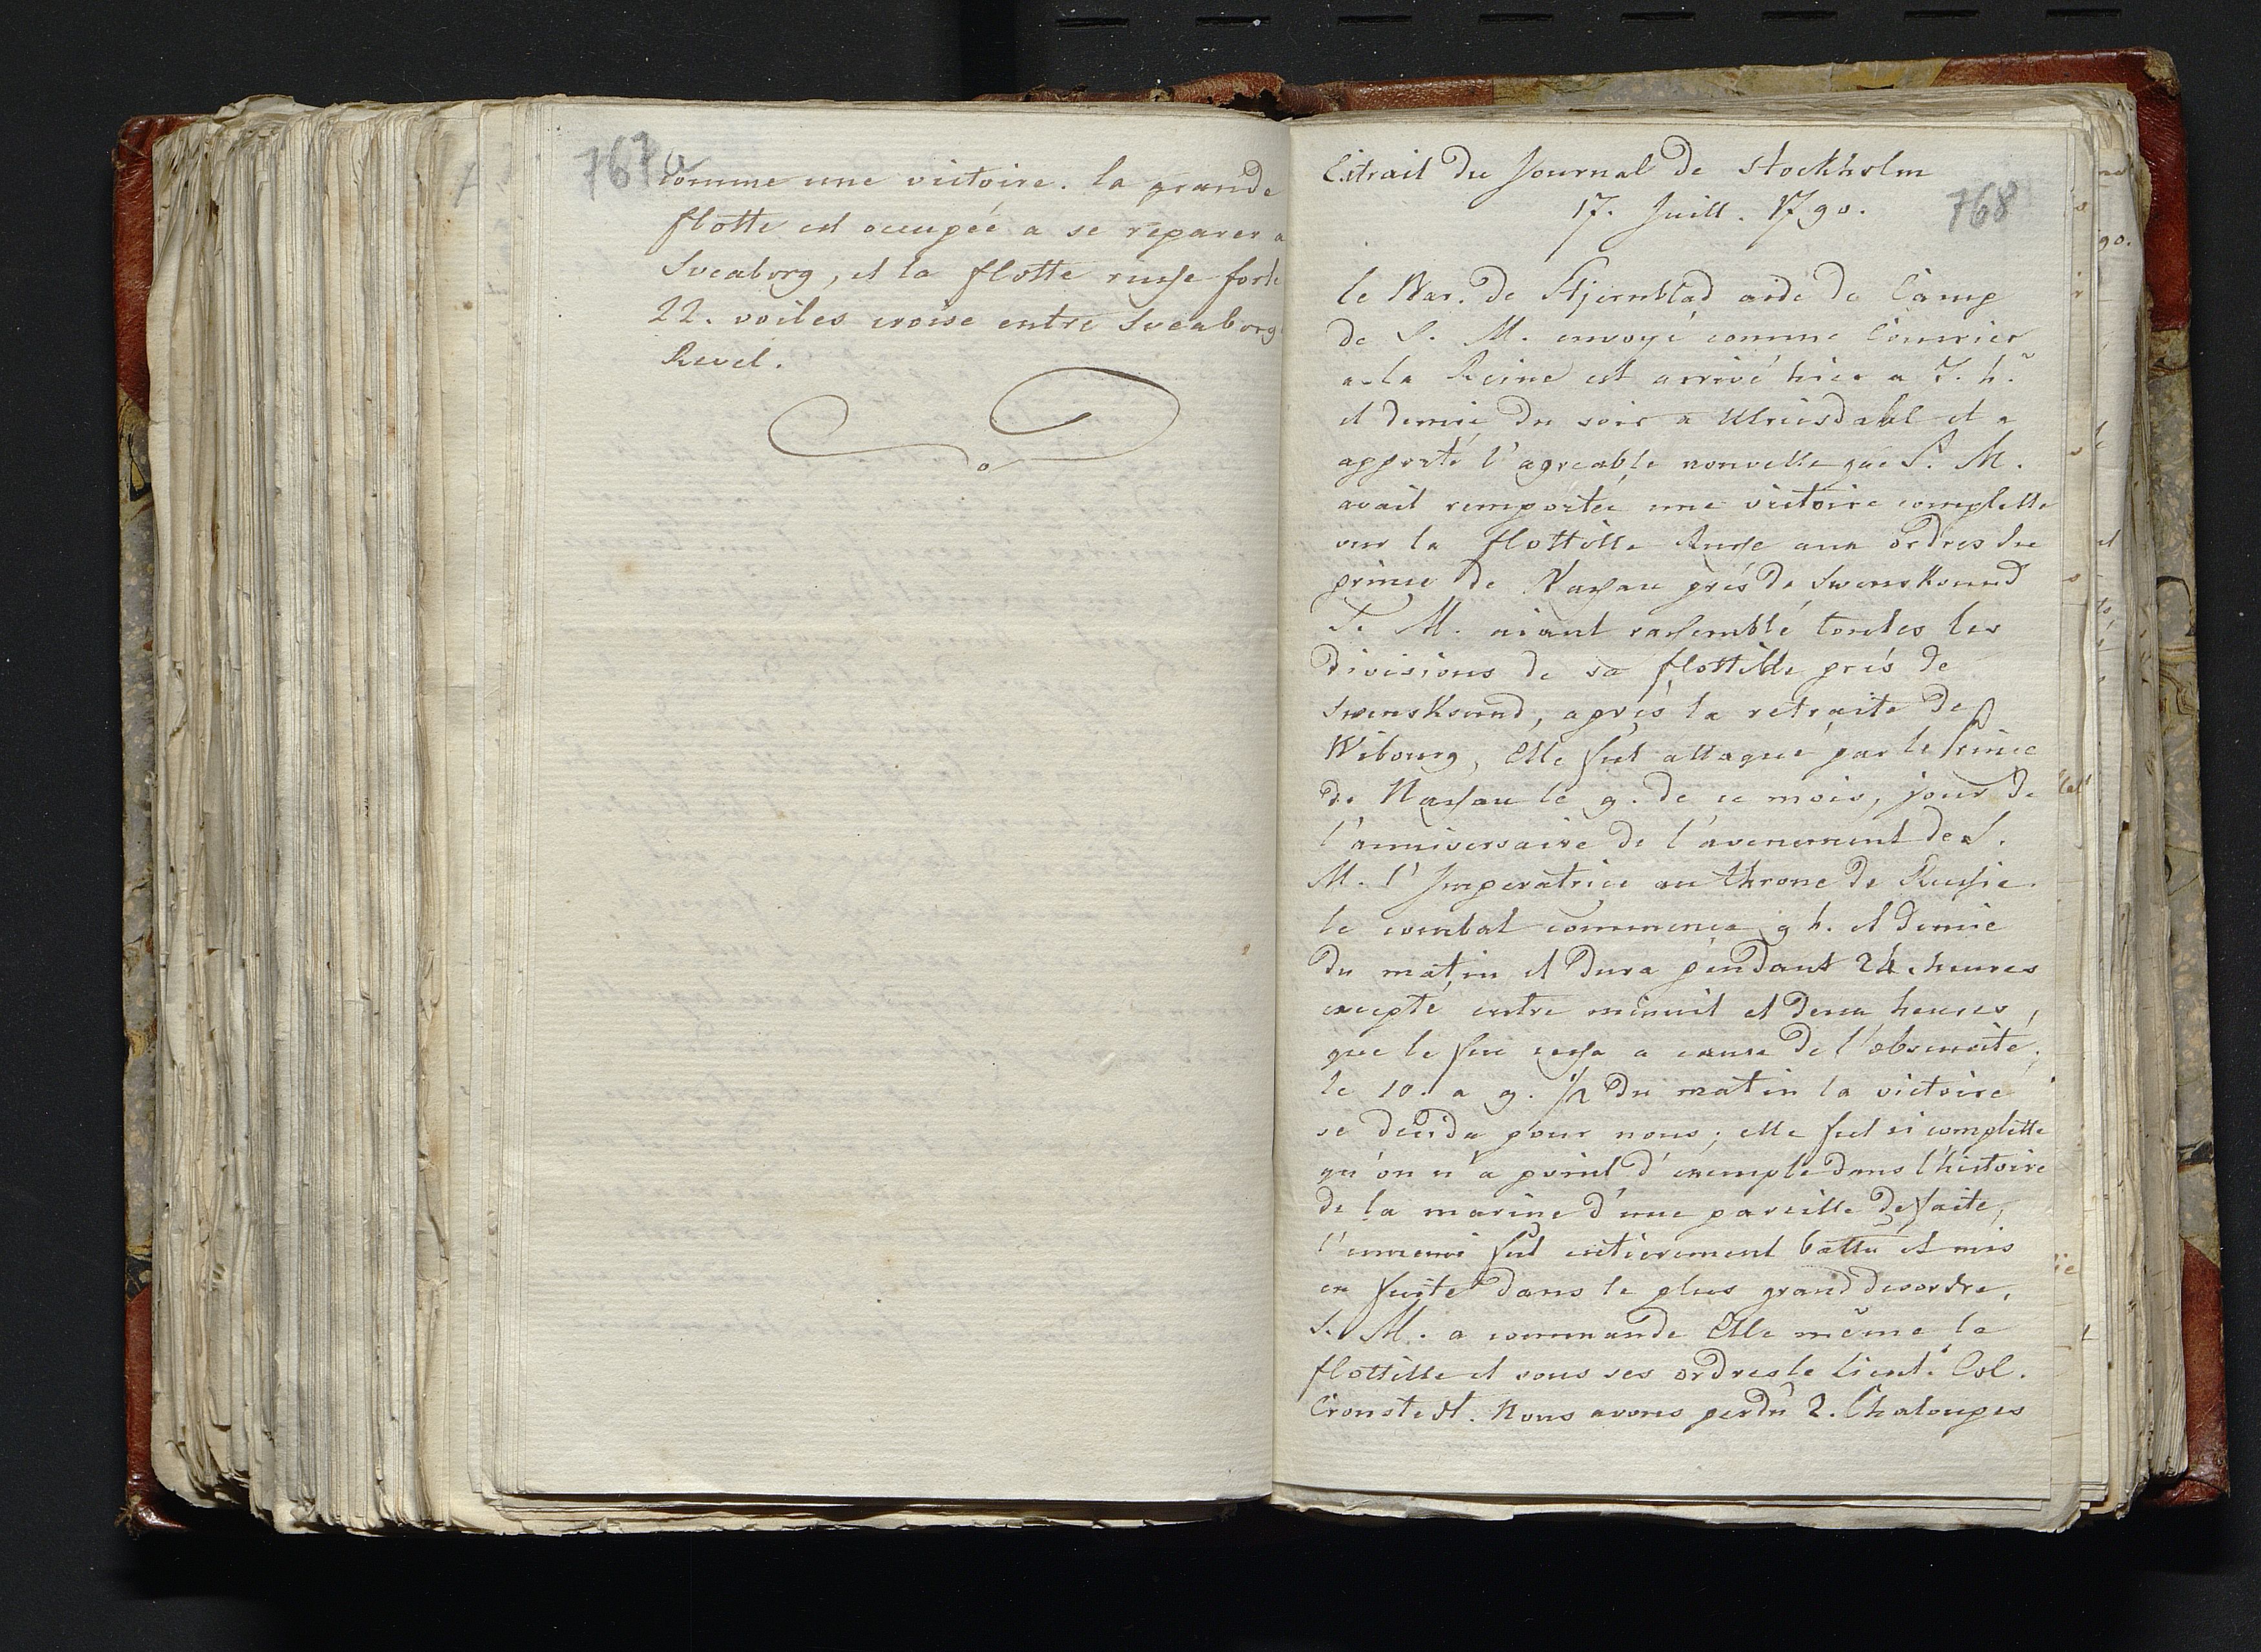 767 v
comme une victoire. la grande
flotte est occupée a se reparer a
Sveaborg, et la flotte russe forte
22. voiles croise entre Sveaborg
Revel.
Extrait du Journal de Stockholm
17. Juill. 1790.
768
le Bar. de Stjernblad aide de Camp
de S. M. envoyé comme Courrier
a la Reine est arrivé hier a 7. h.
et demie du soir a Ulricsdahl et a
apporté l'agreable nouvelle que S. M.
avait remportée une victoire complette
sur la flottille Russe aux ordres du
prince de Nassau près de Swensksund
S. M. aiant rassemblé toutes les
divisions de sa flottille près de
Swensksund, après la retraite de
Wibourg, Elle fut attaqué par le Prince
de Nassau le 9. de ce mois, jour de
l'anniversaire de l'avenement de S.
M. l'Imperatrice au throne de Russie.
le combat commença 9 h. et demie
du matin et dura pendant 24. heures
excepté entre minuit et deux heures,
que le feu cessa a cause de l'obscurité.
le 10. a 9. 1/2 du matin la victoire
se decida pour nous; elle fut si complette
qu'on n'a point d'exemple dans l'histoire
de la marine d'une pareille defaite,
l'ennemi fut entierement battu et mis
en fuite dans le plus grand desordre,
S. M. a commande Elle même la
flottille et sous ses ordres le Lieut. Col.
Cronstedt. Nous avons perdu 2. Chaloupes